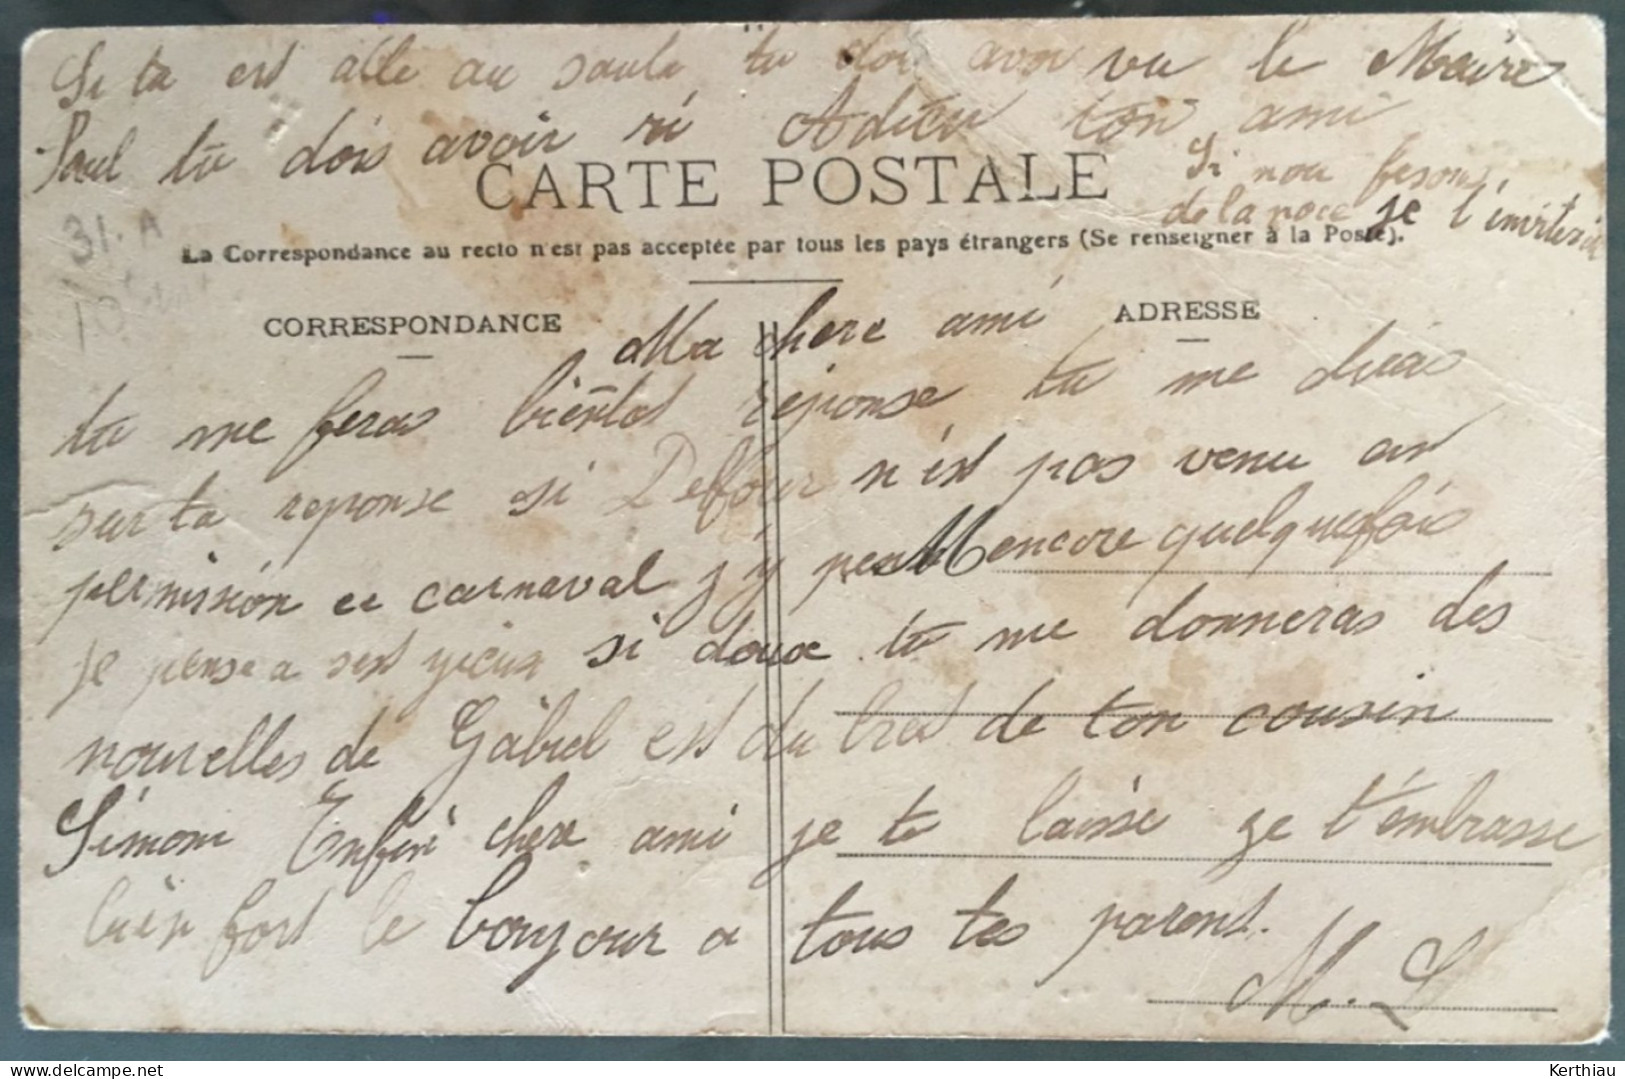 Si tu est allé au saule tu dois avoir vu le Maire
Paul tu dois avoir ri Adieu ton ami
Si nou fesons
de la noce je t'inviterai
CARTE POSTALE
31. A
La Correspondance au recto n'est pas acceptée par tous les pays étrangers (Se renseigner à la Poste).
10
CORRESPONDANCE
ADRESSE
Ma chere ami
tu me feras bientot réponse tu me diras
sur ta reponse si Deffour n'est pas venu en
permission ce carnaval j'y pense encore quelquefois
je pense a ses yieux si doux tu me donneras des
nouvelles de Gabiel est du bras de ton cousin
Simon Enfin chere ami je te laisse ge t'émbrasse
bien fort le bonjour a tous tes parent.
M. L
Kerthiau